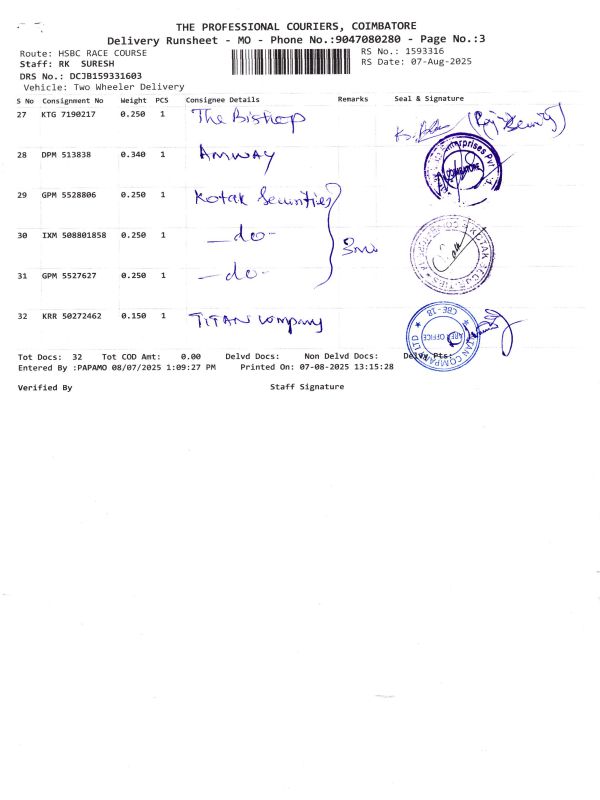 THE PROFESSIONAL COURIERS, COIMBATORE
Delivery Runsheet - MO - Phone No.:9047080280 - Page No.:3
Route: HSBC RACE COURSE
RS No.: 1593316
Staff: RK SURESH
RS Date: 07-Aug-2025
DRS No.: DCJB159331603
Vehicle: Two Wheeler Delivery
S No Consignment No Weight PCS Consignee Details Remarks Seal & Signature
27 KTG 7190217 0.250 1 The Bishop
28 DPM 513838 0.340 1 AMWAY
29 GPM 5528806 0.250 1 Kotak Securities
30 IXM 508801858 0.250 1 —do-
31 GPM 5527627 0.250 1 —do-
32 KRR 50272462 0.150 1 TITAN Company
Tot Docs: 32 Tot COD Amt: 0.00 Delvd Docs: Non Delvd Docs: Delvd Pts:
Entered By :PAPAMO 08/07/2025 1:09:27 PM Printed On: 07-08-2025 13:15:28
Verified By Staff Signature